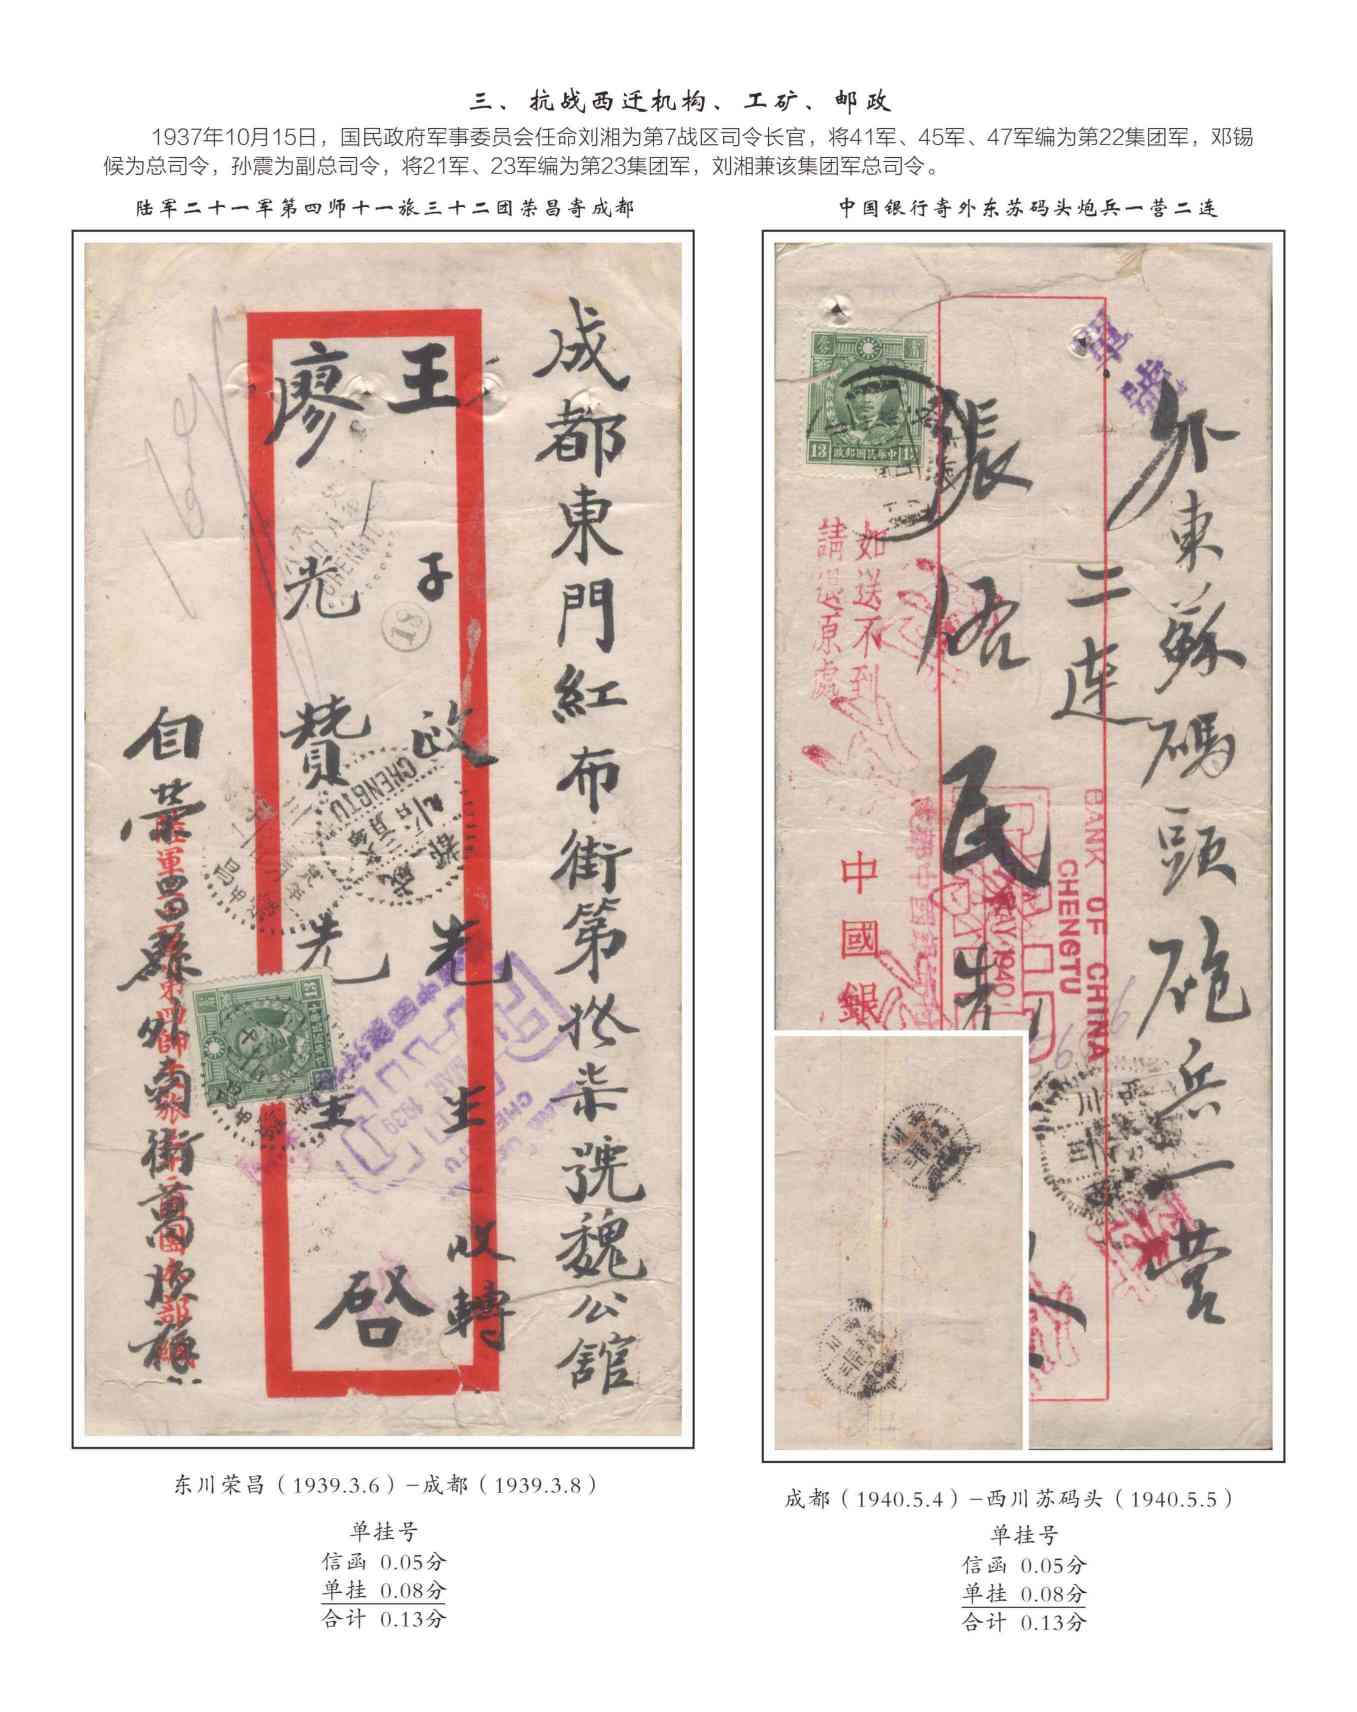 三、抗战西迁机构、工矿、邮政
1937年10月15日，国民政府军事委员会任命刘湘为第7战区司令长官，将41军、45军、47军编为第22集团军，邓锡
候为总司令，孙震为副总司令，将21军、23军编为第23集团军，刘湘兼该集团军总司令。
陆军二十一军第四师十一旅三十二团荣昌寄成都
成都東門紅布街第拾柒號魏公館
王子政先生收轉
廖光贊先生啓
自榮昌縣外南街萬
CHENGTU
成都
18
1939
13
中国银行寄外东苏码头炮兵一营二连
外東蘇碼頭砲兵一營
二連
張洛民先
如送不到
請退原處
中國銀
BANK OF CHINA
CHENGTU
MAY 1940
中華民國郵政
13
西川
东川荣昌（1939.3.6）–成都（1939.3.8）
单挂号
信函 0.05分
单挂 0.08分
合计 0.13分
成都（1940.5.4）–西川苏码头（1940.5.5）
单挂号
信函 0.05分
单挂 0.08分
合计 0.13分